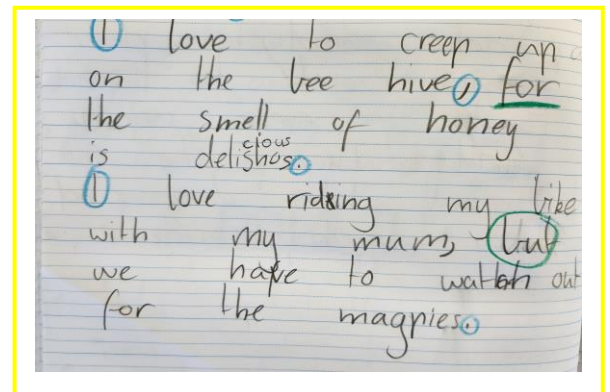 I love to creep up
on the bee hive, for
the smell of honey
cious
is delishos.
I love riding my bike
with my mum, but
we have to watch out
for the magpies.